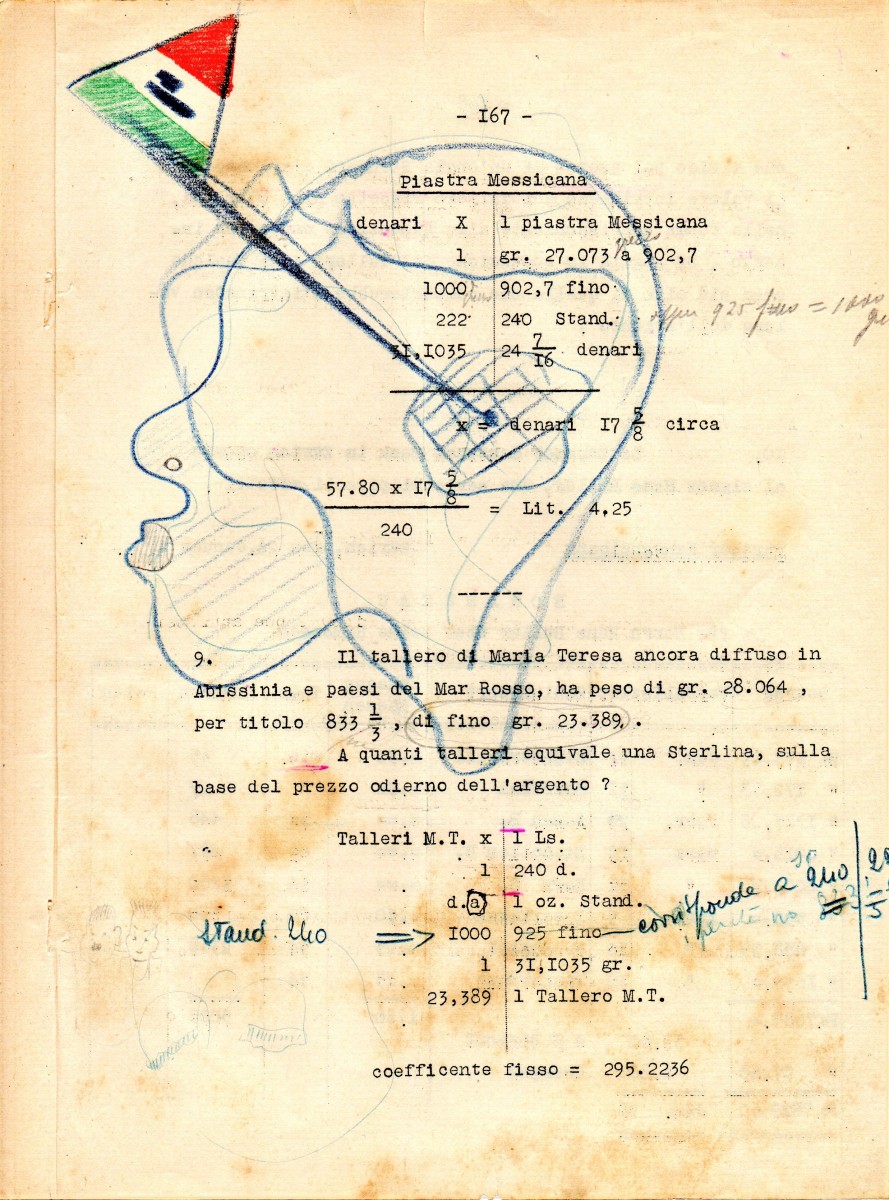 - I67 -
Piastra Messicana
denari X 1 piastra Messicana
1 gr. 27.073 a 902,7
1000 902,7 fino
222 240 Stand. 925 fino = 1000
3I,I035 24 7/I6 denari
x = denari I7 5/8 circa
57.80 x I7 5/8
240
= Lit. 4.25
------
9. Il tallero di Maria Teresa ancora diffuso in
Abissinia e paesi del Mar Rosso, ha peso di gr. 28.064 ,
per titolo 833 1/3 , di fino gr. 23.389, .
A quanti talleri equivale una Sterlina, sulla
base del prezzo odierno dell'argento ?
Talleri M.T. x I Ls.
1 240 d.
d. a 1 oz. Stand.
Stand. 240 => I000 925 fino — corrisponde a 240
perchè no
1 3I,I035 gr.
23,389 1 Tallero M.T.
coefficente fisso = 295.2236